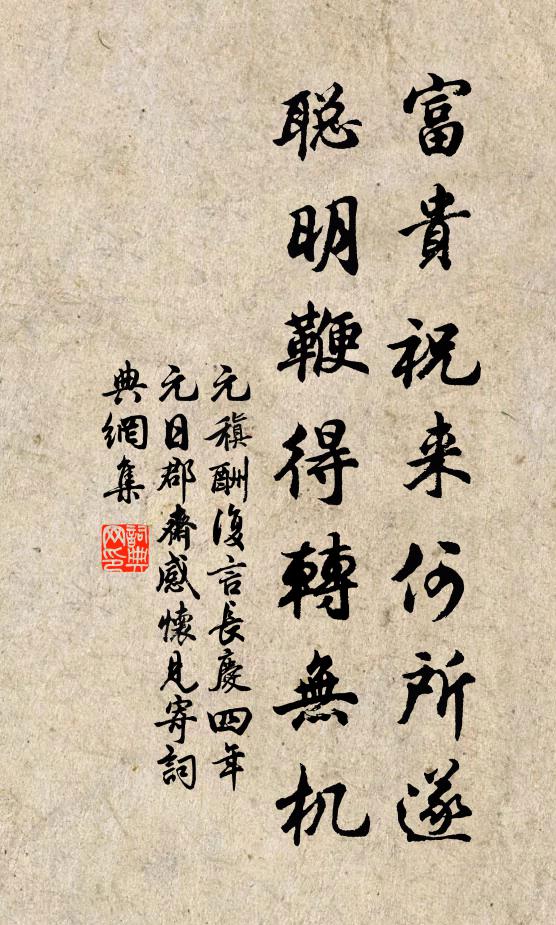 富貴祝来何所遂
聡明鞭得轉無机
元稹酬復言長慶四年
元日郡齋感懷見寄詞
典網集
詞典網印